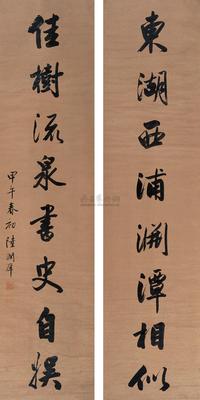 東湖西浦渊潭相似
佳樹流泉書史自娱
甲午春初陸潤庠